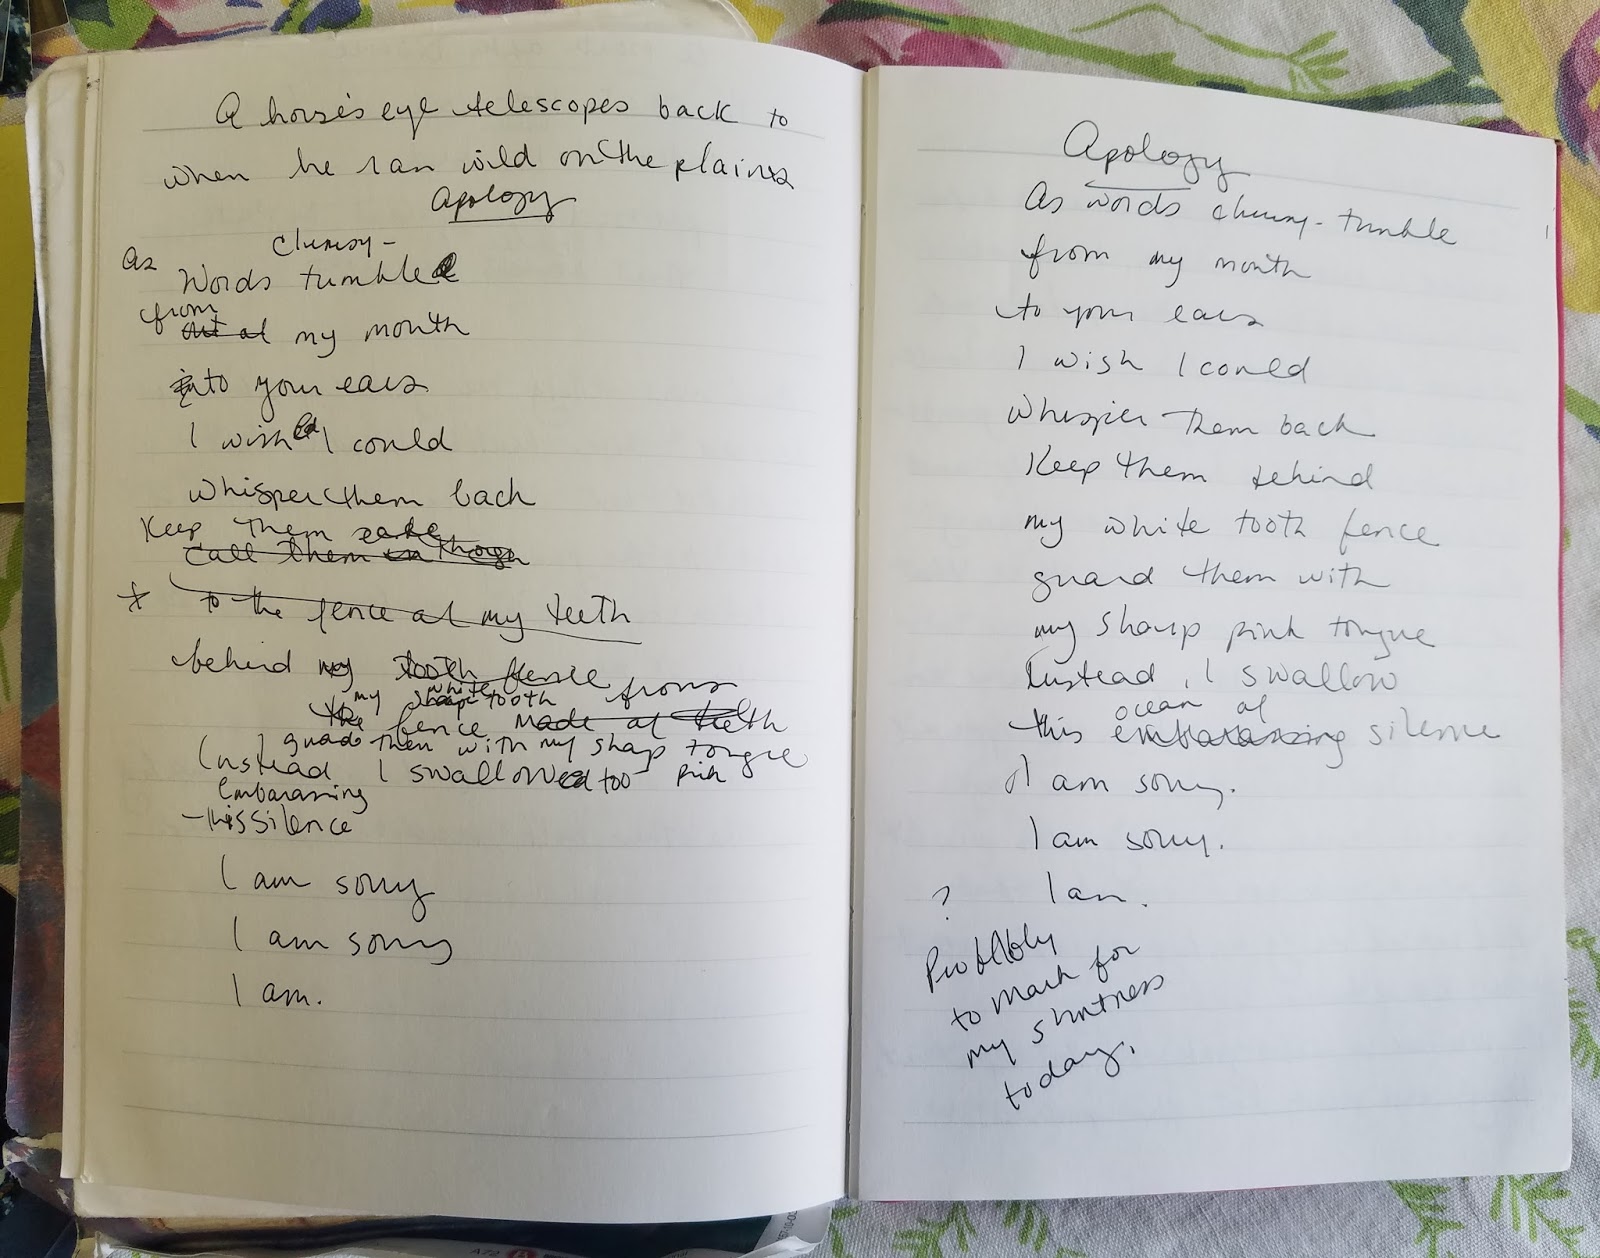 A horse's eye telescopes back to
when he ran wild on the plains
Apology
clumsy-
As Words tumble
from
out of my mouth
into your ears
I wished I could
whisper them back
Keep them
call them in
to the fence of my teeth
behind my tooth fence from
my white tooth
the fence made of teeth
guard them with my sharp tongue
Instead I swallowed too pink
Embarassing
this silence
I am sorry
I am sorry
I am.
Apology
As words clumsy-tumble
from my mouth
to your ears
I wish I could
Whisper them back
Keep them behind
my white tooth fence
guard them with
my sharp pink tongue
Instead, I swallow
ocean of
this embarassing silence
I am sorry.
I am sorry.
? I am.
Probably
to mark for
my shortness
today.
A72